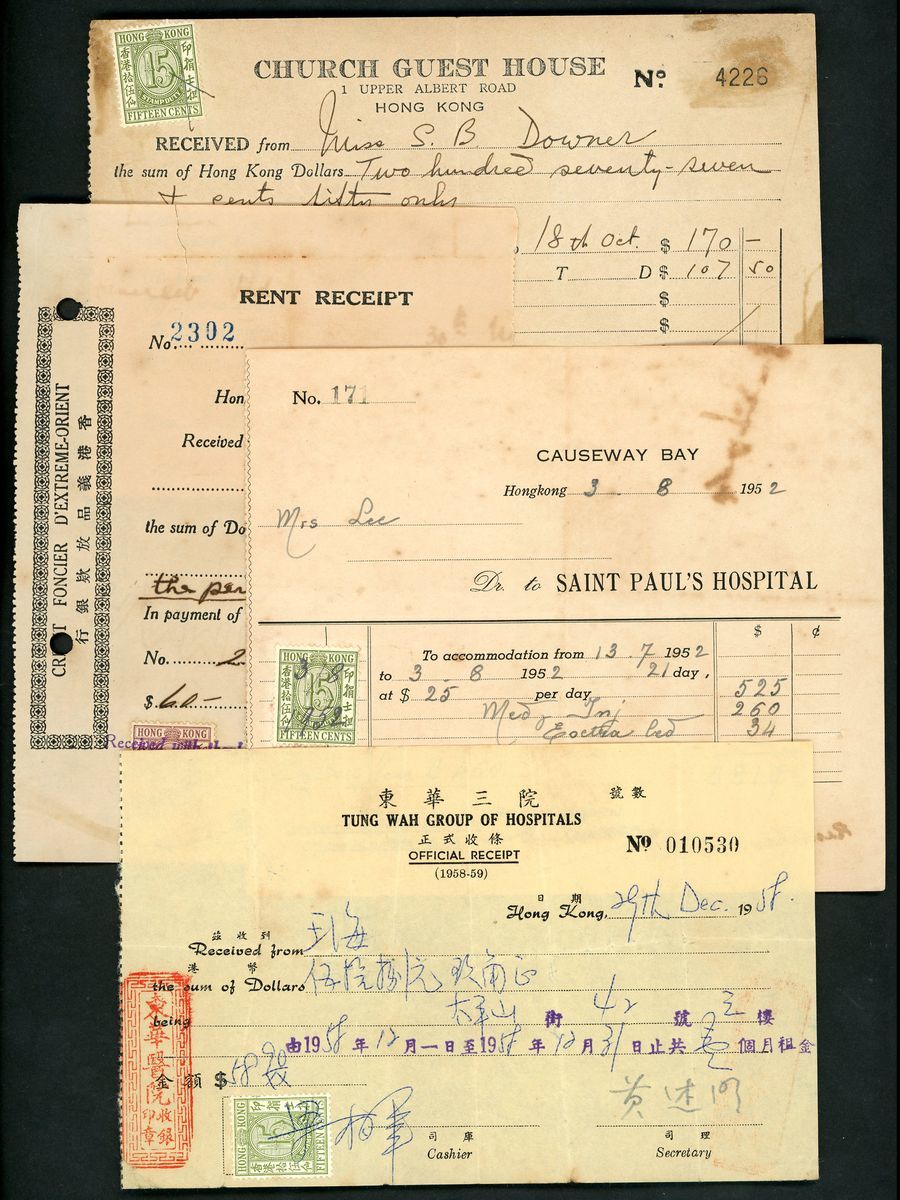 HONG KONG
香港拾伍仙
印捐士担
15
STAMP DUTY
FIFTEEN CENTS
CHURCH GUEST HOUSE
1 UPPER ALBERT ROAD
HONG KONG
No. 4226
RECEIVED from Miss S. B. Downer
the sum of Hong Kong Dollars Two hundred seventy-seven
+ cents fifty only
18th Oct. $ 170 -
T D $ 107 50
$
$
RENT RECEIPT
No. 2302
Hon
Received
the sum of Do
the per
In payment of
No. 2
$ 60.-
HONG KONG
Received with the
CRE T FONCIER D'EXTREME-ORIENT
香港義品放款銀行
No. 171
CAUSEWAY BAY
Hongkong 3 . 8 1952
Mrs Lee
Dr. to SAINT PAUL'S HOSPITAL
$ ¢
To accommodation from 13 . 7 1952
to 3 . 8 1952 21 day,
at $ 25 per day 525
Med Inj 260
Exctra bed 34
HONG KONG
香港拾伍仙
印捐士担
15
3 8
1952
FIFTEEN CENTS
東華三院
號數
TUNG WAH GROUP OF HOSPITALS
正式收條
OFFICIAL RECEIPT
(1958-59)
No 010530
日期
Hong Kong, 29th Dec. 1958.
茲收到
Received from 王海
港幣
the sum of Dollars 伍拾捌元玖角正
being 太平山 街 42 號 三 樓
由1958年12月一日至1958年12月31日止共壹個月租金
金額 $ 58 90
東華醫院
收銀印章
HONG KONG
香港拾伍仙
印捐士担
15
FIFTEEN CENTS
司庫
Cashier
司理
Secretary